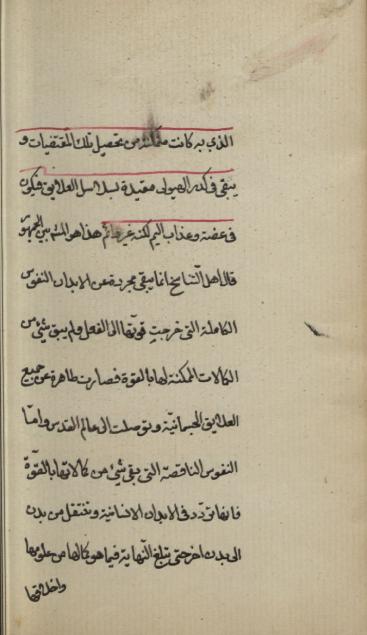 الذي به كانت متمكنة من تحصيل تلك المقتضيات و
يبقى في كدر الهيولى مقيدة بسلاسل العلايق فتكون
في غصة وعذاب اليم لكنه غير دائم هذا هو المشهور بين الجمهور
قال اهل التناسخ انما يبقى مجردة عن الابدان النفوس
الكاملة التي خرجت قوتها الى الفعل ولم يبق شئ من
الكمالات الممكنة لها بالقوة فصارت طاهرة عن جميع
العلايق الجسمانية وتوصلت الى عالم القدس واما
النفوس الناقصة التي بقي شئ من كمالاتها بالقوة
فانها تردد في الابدان الانسانية وتنتقل من بدن
الى بدن اخر حتى تبلغ النهاية فيما هو كمالها من علومها
واخلاقها